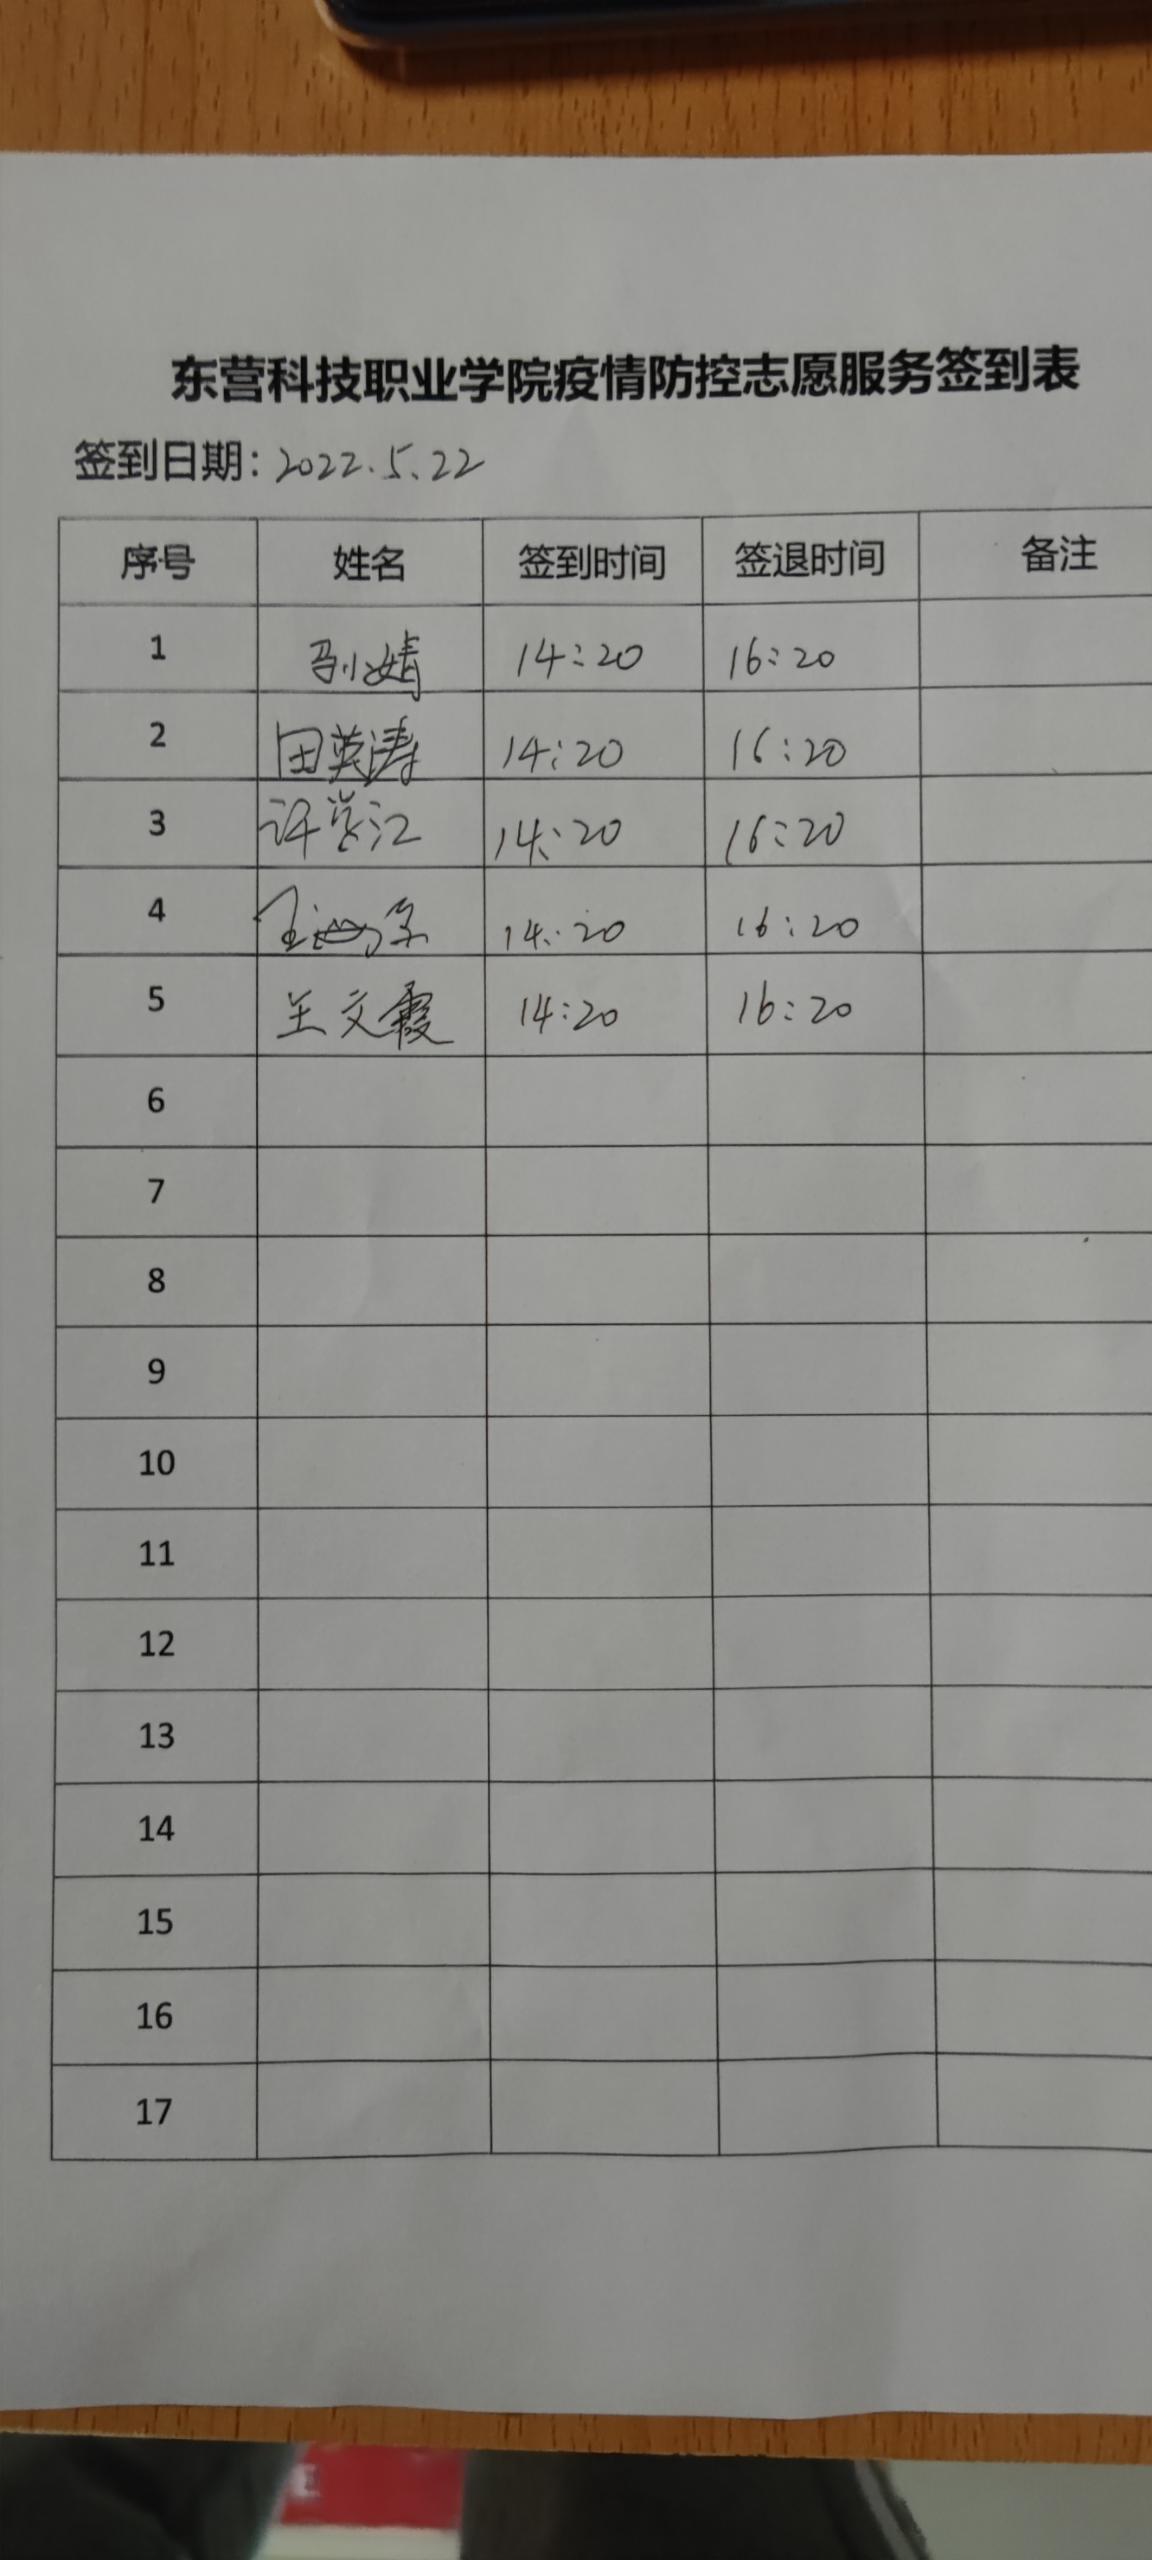 东营科技职业学院疫情防控志愿服务签到表
签到日期：2022.5.22
序号 姓名 签到时间 签退时间 备注
1 孙婧 14:20 16:20
2 田英涛 14:20 16:20
3 许学江 14:20 16:20
4 14:20 16:20
5 王文霞 14:20 16:20
6
7
8
9
10
11
12
13
14
15
16
17